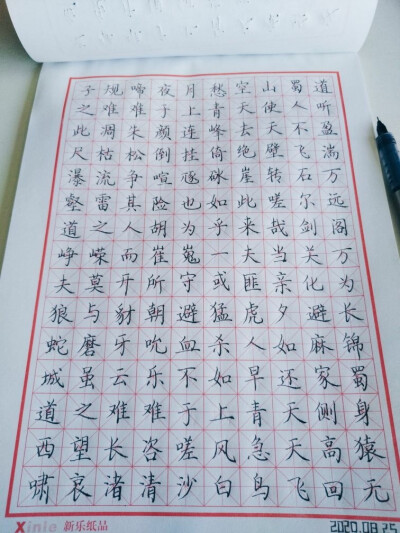 子规啼夜月愁空山蜀道
之难难于上青天使人听
此凋朱颜连峰去天不盈
尺枯松倒挂倚绝壁飞湍
瀑流争喧豗砯崖转石万
壑雷其险也如此嗟尔远
道之人胡为乎来哉剑阁
峥嵘而崔嵬一夫当关万
夫莫开所守或匪亲化为
狼与豺朝避猛虎夕避长
蛇磨牙吮血杀人如麻锦
城虽云乐不如早还家蜀
道之难难于上青天侧身
西望长咨嗟风急天高猿
啸哀渚清沙白鸟飞回无
Xinle 新乐纸品
2020.08.25